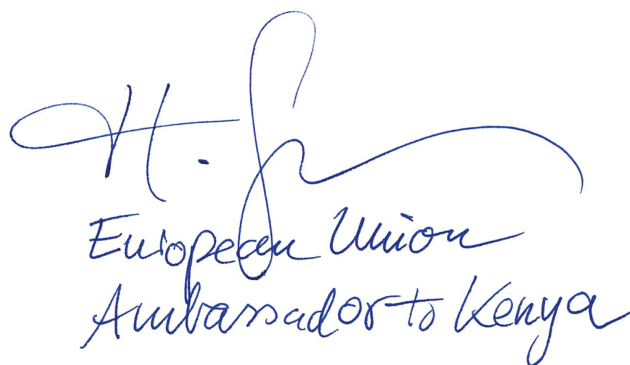 H.
European Union
Ambassador to Kenya